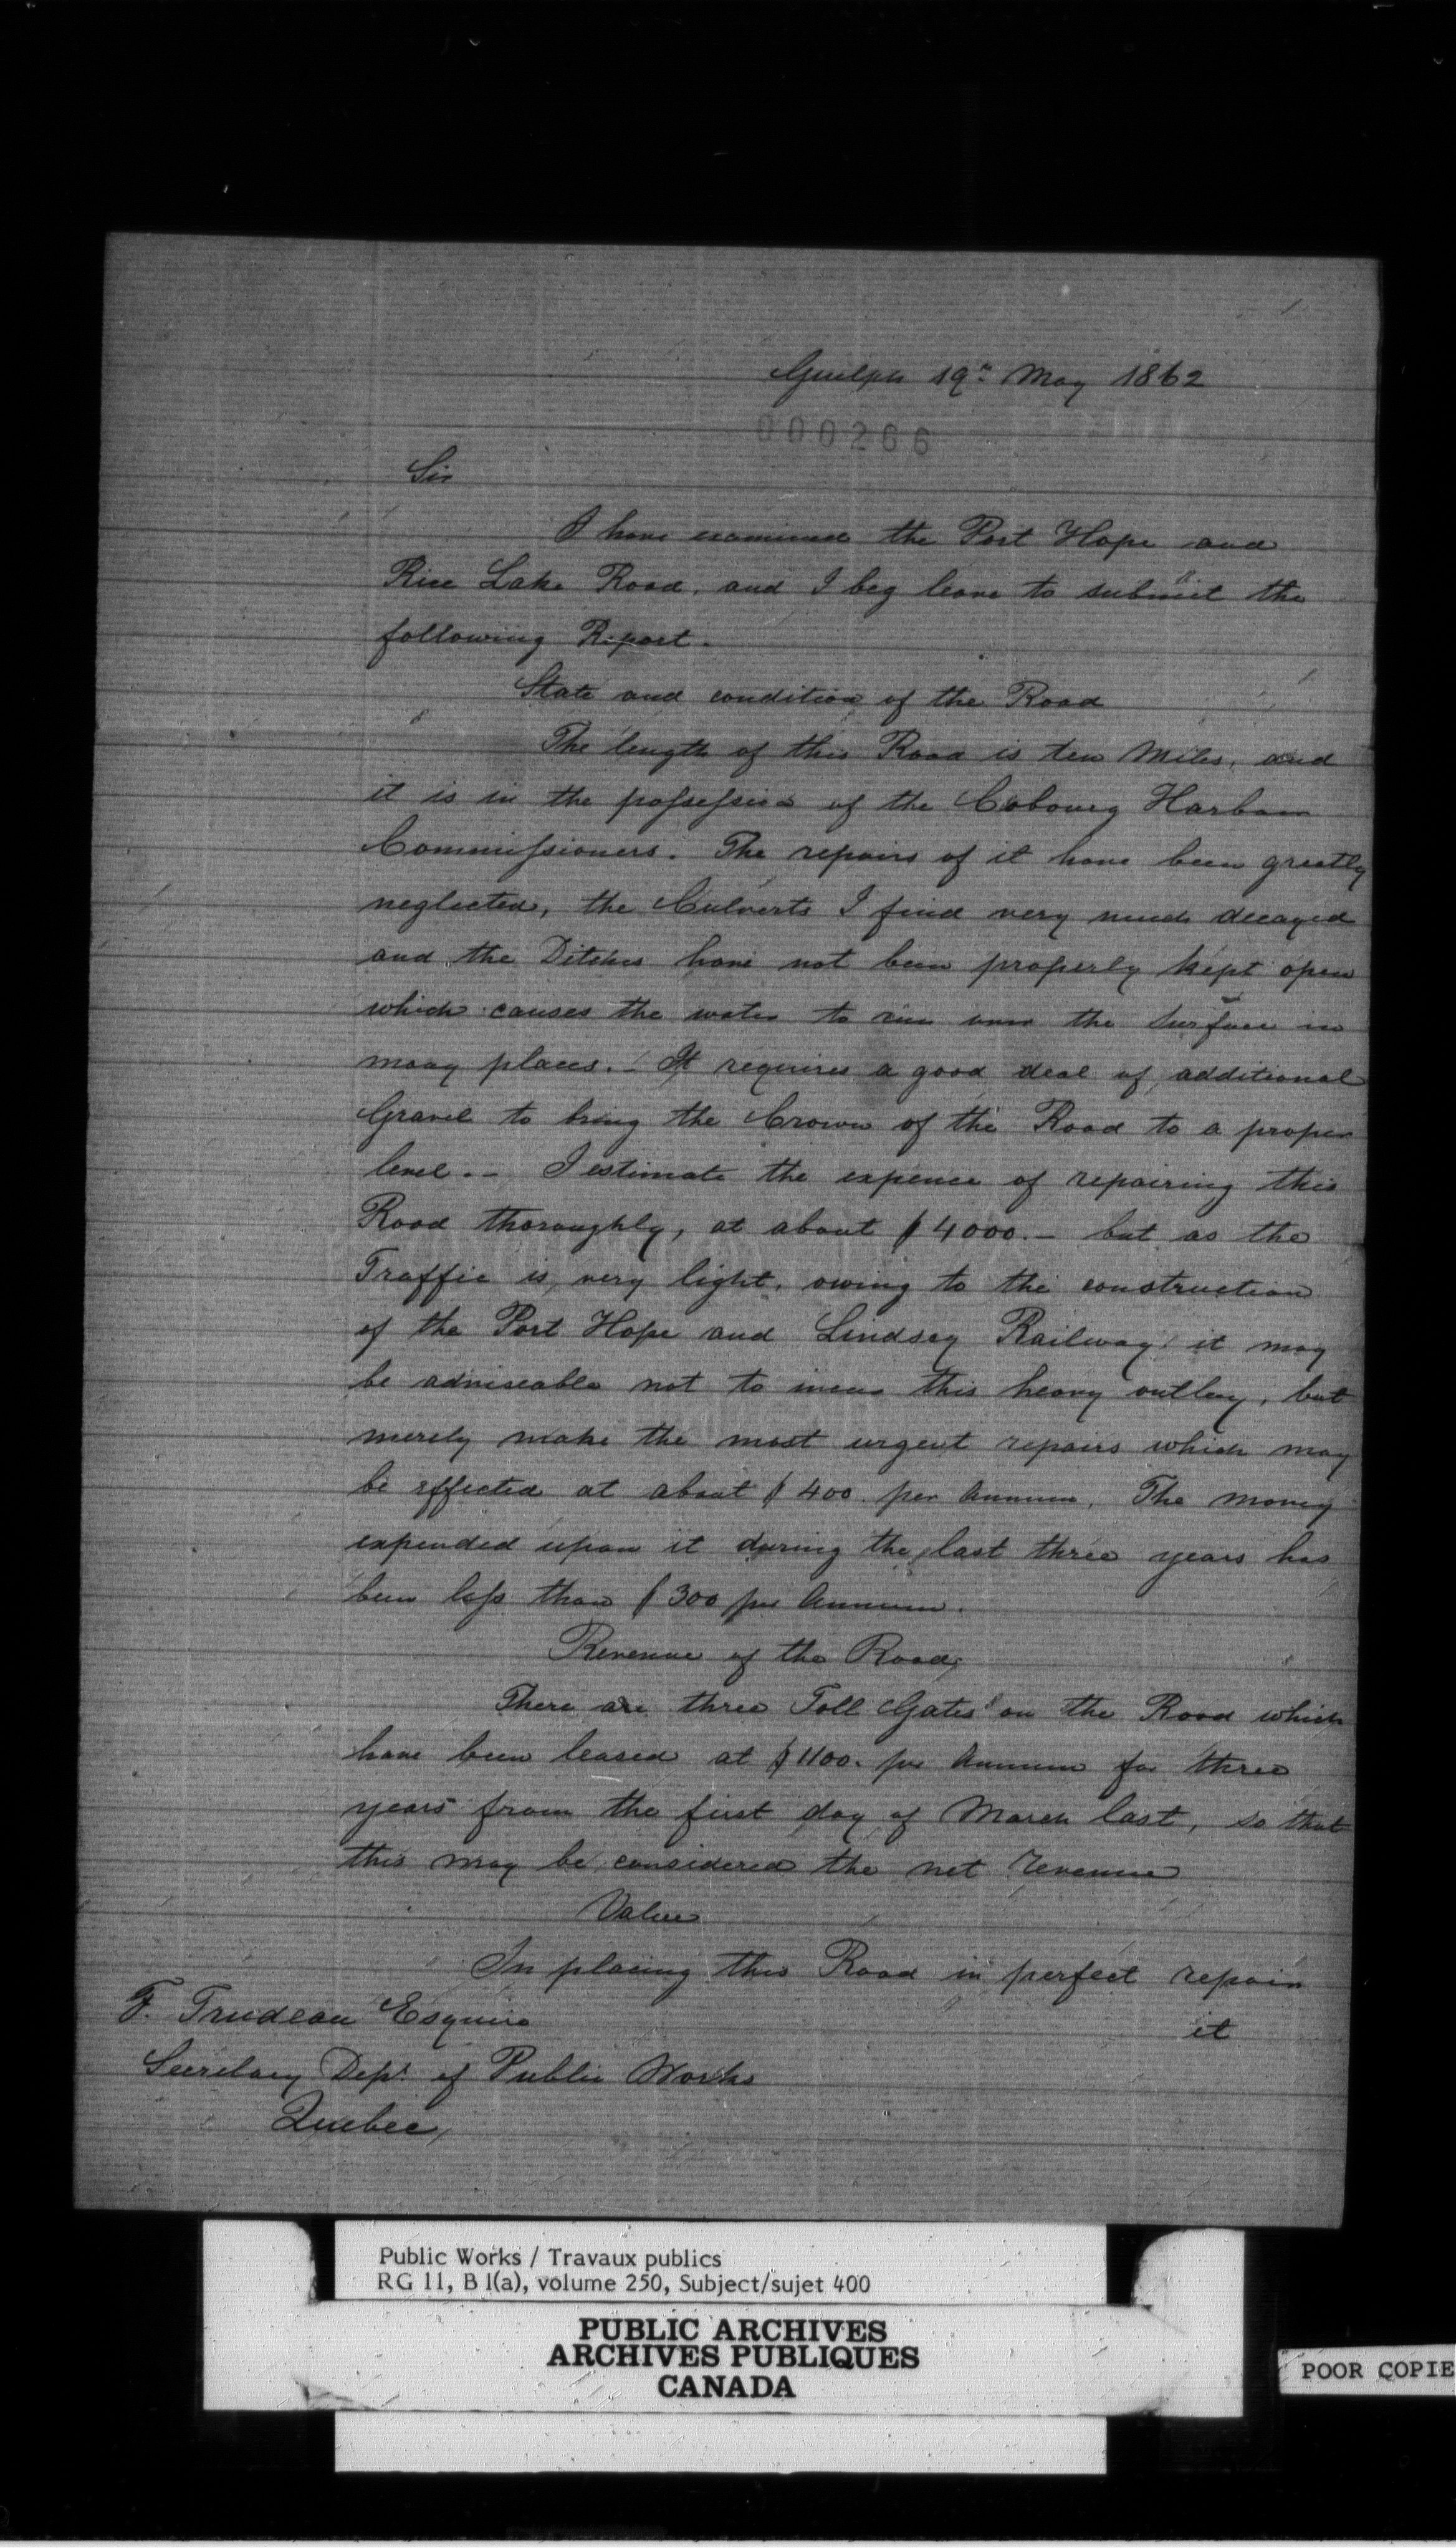 Guelph 19th May 1862
000266
Sir
I have examined the Port Hope and
Rice Lake Road, and I beg leave to submit the
following Report.
State and condition of the Road
The length of this Road is ten Miles, and
it is in the possession of the Cobourg Harbour
Commissioners. The repairs of it have been greatly
neglected, the Culverts I find very much decayed
and the Ditches have not been properly kept open
which causes the water to run over the surface in
many places. - It requires a good deal of additional
Gravel to bring the Crown of the Road to a proper
level. - I estimate the expence of repairing this
Road thoroughly, at about $4000. - but as the
Traffic is very light, owing to the construction
of the Port Hope and Lindsay Railway it may
be adviseable not to incur this heavy outlay, but
merely make the most urgent repairs which may
be effected at about $400 per Annum. The money
expended upon it during the last three years has
been less than $300 per Annum.
Revenue of the Road,
There are three Toll Gates on the Road which
have been leased at $1100. per Annum for three
years from the first day of March last, so that
this may be considered the net revenue
Value
In placing this Road in perfect repair
it
F. Trudeau Esquire
Secretary Dept of Public Works
Quebec,
Public Works / Travaux publics
RG 11, B 1(a), volume 250, Subject/sujet 400
PUBLIC ARCHIVES
ARCHIVES PUBLIQUES
CANADA
POOR COPIE